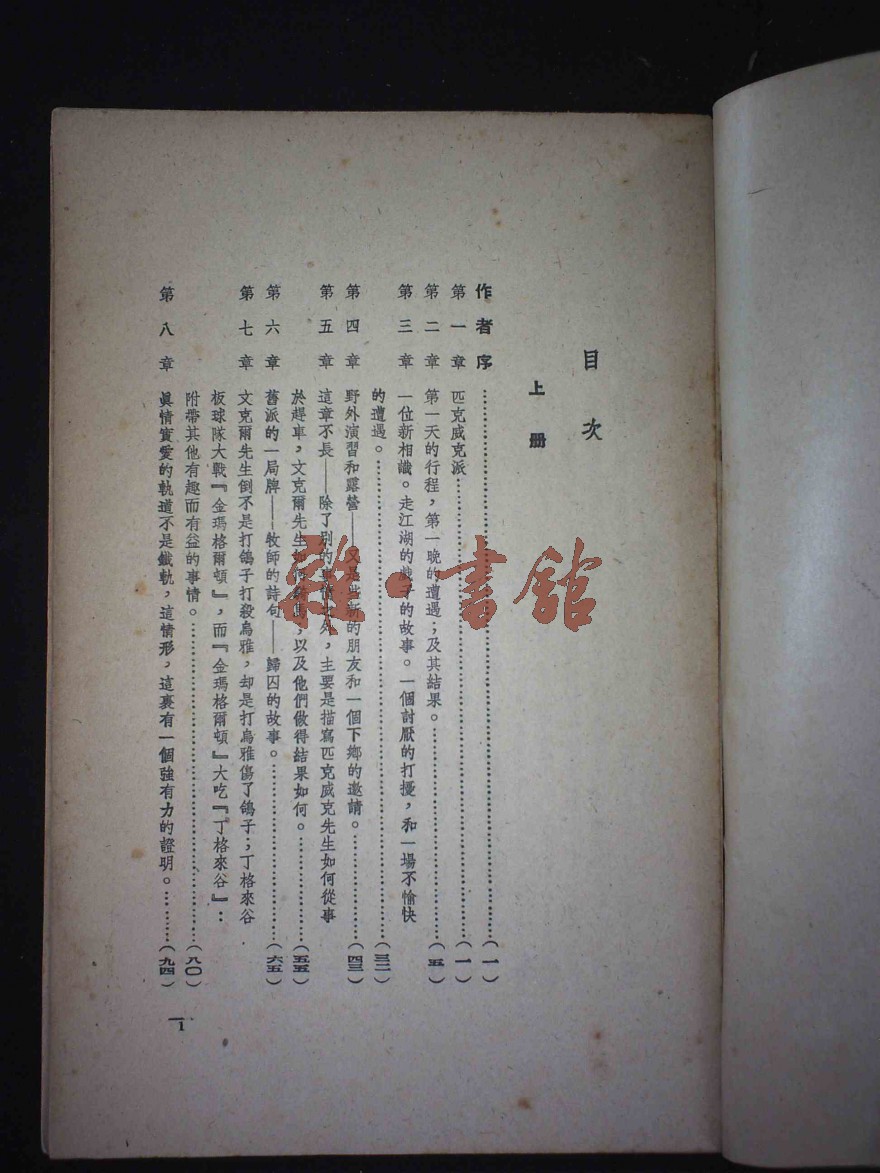 目次
上册
作者序……(一)
第一章 匹克威克派……(一)
第二章 第一天的行程，第一晚的遭遇；及其結果。……(五)
第三章 一位新相識。走江湖的戲子的故事。一個討厭的打擾，和一場不愉快
的遭遇。……(三二)
第四章 野外演習和露營——又是些新的朋友和一個下鄉的邀請。……(四三)
第五章 這章不長——除了別的事情之外，主要是描寫匹克威克先生如何從事
於趕車，文克爾先生如何騎馬；以及他們做得結果如何。……(五五)
第六章 舊派的一局牌——牧師的詩句——歸囚的故事。……(六五)
第七章 文克爾先生倒不是打鴿子打殺烏雅，却是打烏雅傷了鴿子；丁格來谷
板球隊大戰『金瑪格爾頓』，而『金瑪格爾頓』大吃『丁格來谷』：
附帶其他有趣而有益的事情。……(八〇)
第八章 眞情實愛的軌道不是鐵軌，這情形，這裏有一個強有力的證明。……(九四)
1
雜·書館